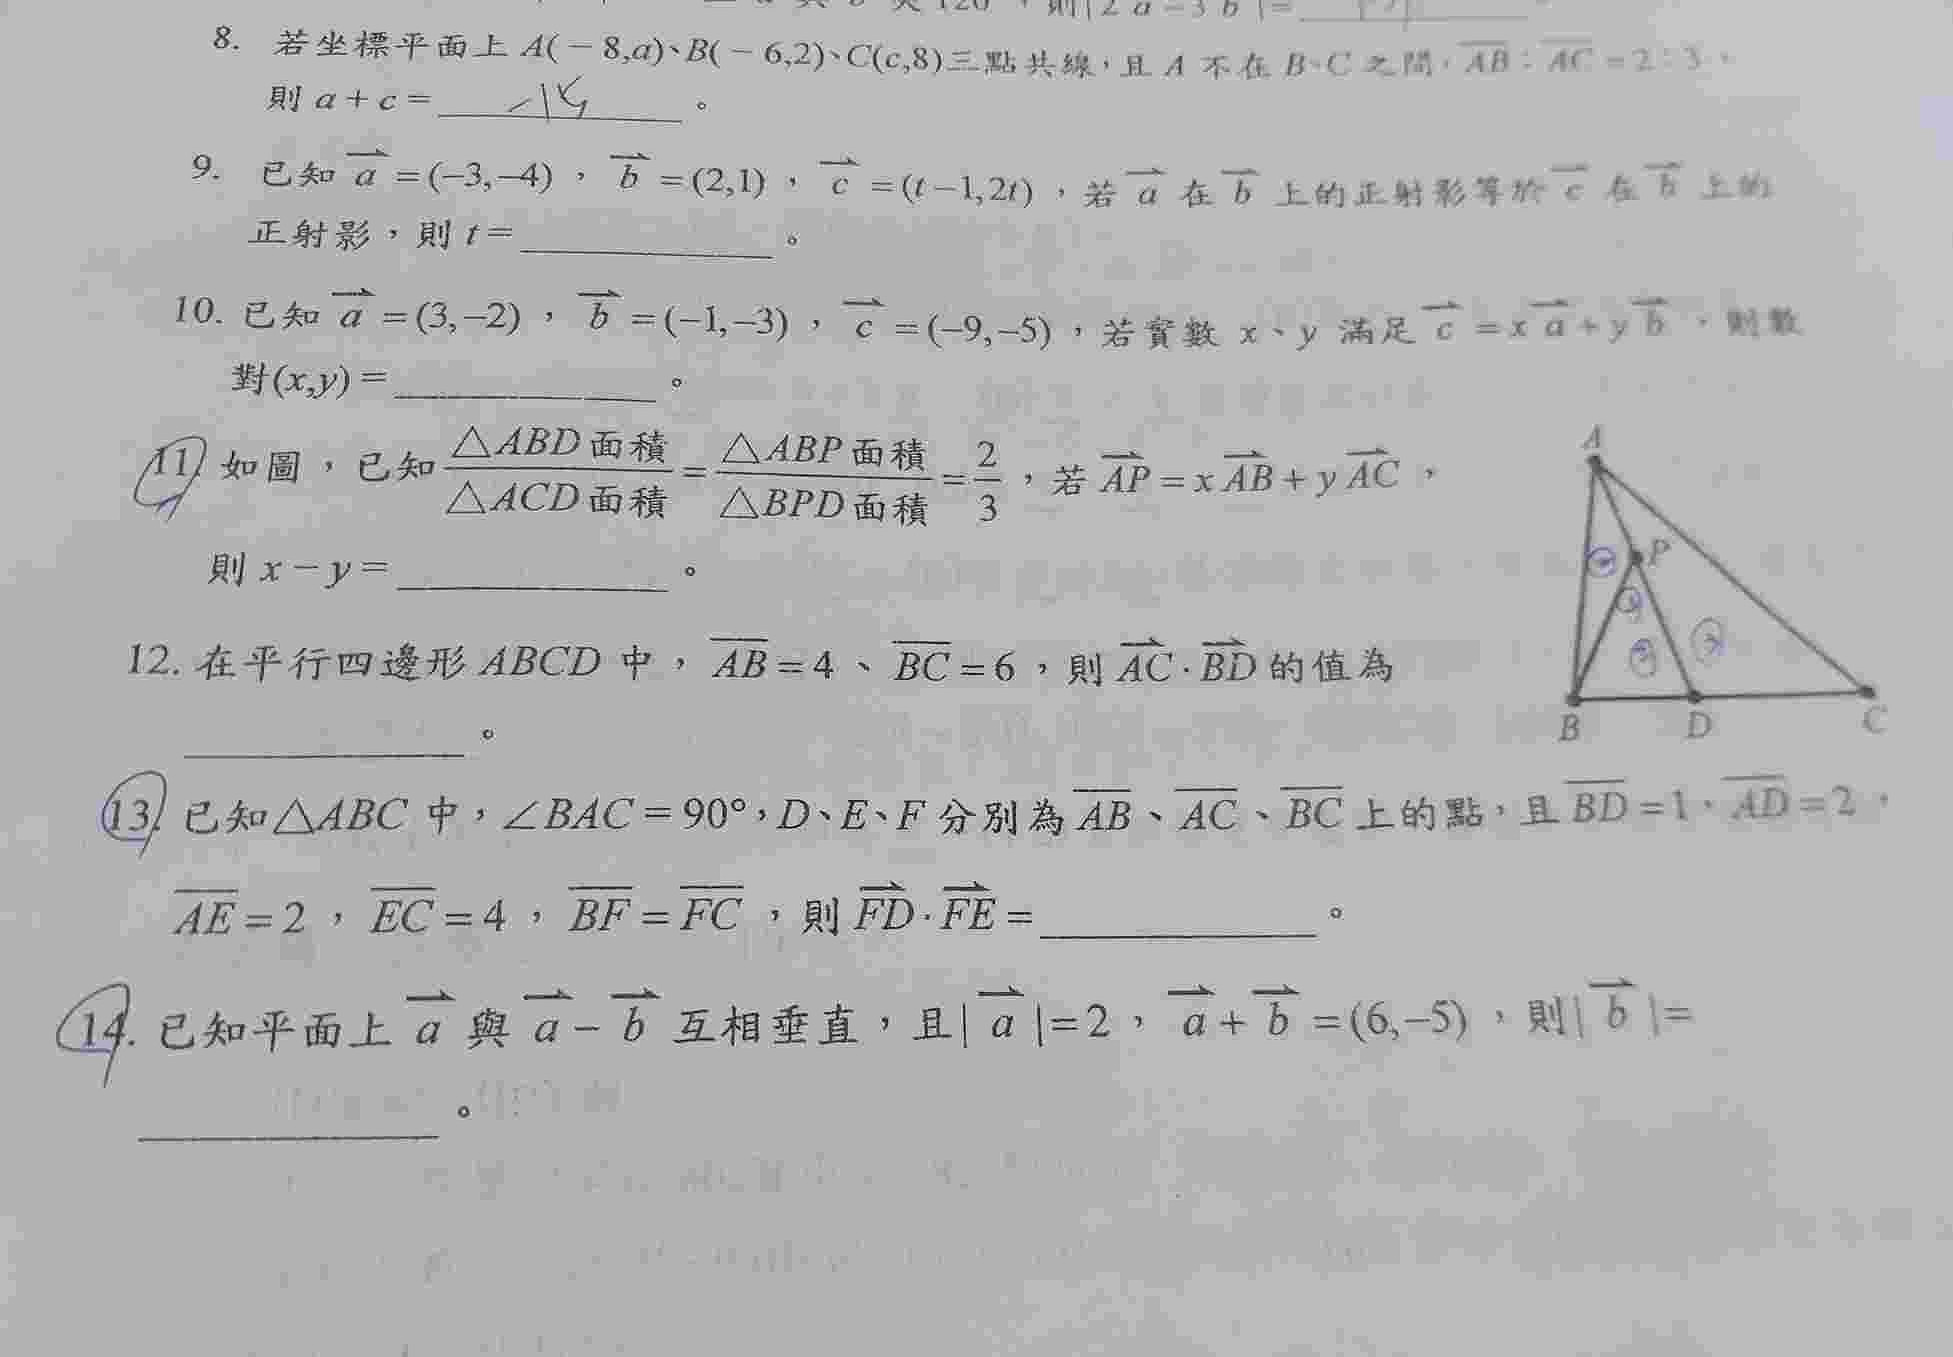 與 b 夾120°，則|2a-3b|=
8. 若坐標平面上 A(-8,a)、B(-6,2)、C(c,8)三點共線，且 A 不在 B、C 之間，AB：AC=2：3，
則 a+c= -15 。
9. 已知 a=(-3,-4)，b=(2,1)，c=(t-1,2t)，若 a 在 b 上的正射影等於 c 在 b 上的
正射影，則 t=＿＿＿。
10. 已知 a=(3,-2)，b=(-1,-3)，c=(-9,-5)，若實數 x、y 滿足 c=xa+yb，則數
對(x,y)=＿＿＿。
11. 如圖，已知 △ABD面積/△ACD面積=△ABP面積/△BPD面積=2/3，若 AP=xAB+yAC，
則 x-y=＿＿＿。
A
P
B D C
12. 在平行四邊形 ABCD 中，AB=4、BC=6，則 AC·BD 的值為
＿＿＿。
13. 已知△ABC 中，∠BAC=90°，D、E、F 分別為 AB、AC、BC 上的點，且 BD=1、AD=2，
AE=2，EC=4，BF=FC，則 FD·FE=＿＿＿。
14. 已知平面上 a 與 a-b 互相垂直，且|a|=2，a+b=(6,-5)，則|b|=
＿＿＿。